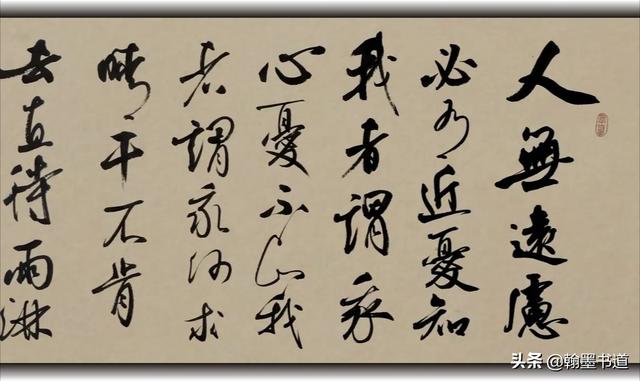 人無遠慮
必有近憂知
我者謂我
心憂不知我
者謂我何求
晴干不肯
去直待雨淋
头条 @翰墨书道